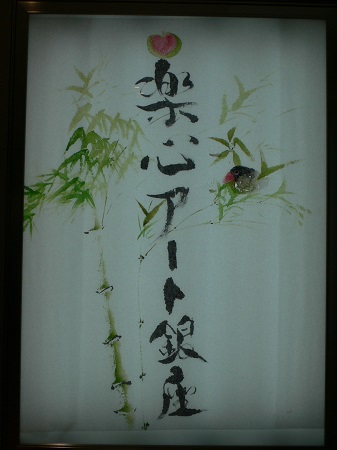 楽心アート銀座